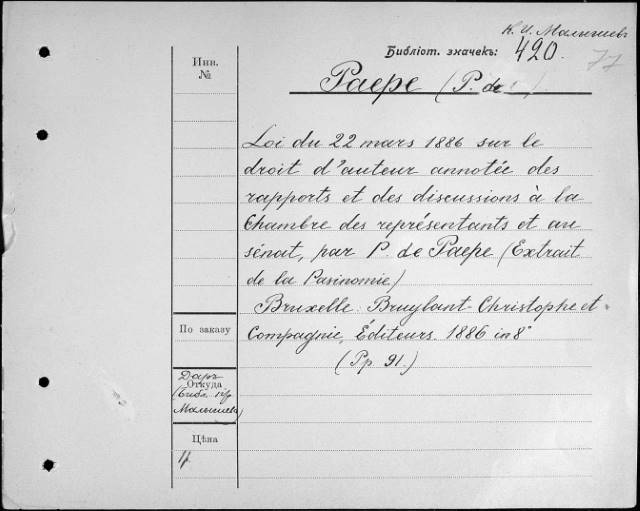 К. И. Малышевъ
Библіот. значекъ: 420.
77
Инв.
№
Paepe (P. de)
Loi du 22 mars 1886 sur le
droit d'auteur annotée des
rapports et des discussions à la
Chambre des représentants et au
sénat, par P. de Paepe (Extrait
de la Pasinomie)
Bruxelle: Bruylant-Christophe et
Compagnie, Éditeurs. 1886 in 8°
(Pp. 91.)
По заказу
Даръ
Откуда
(Библ.
Малышева)
Цѣна
4